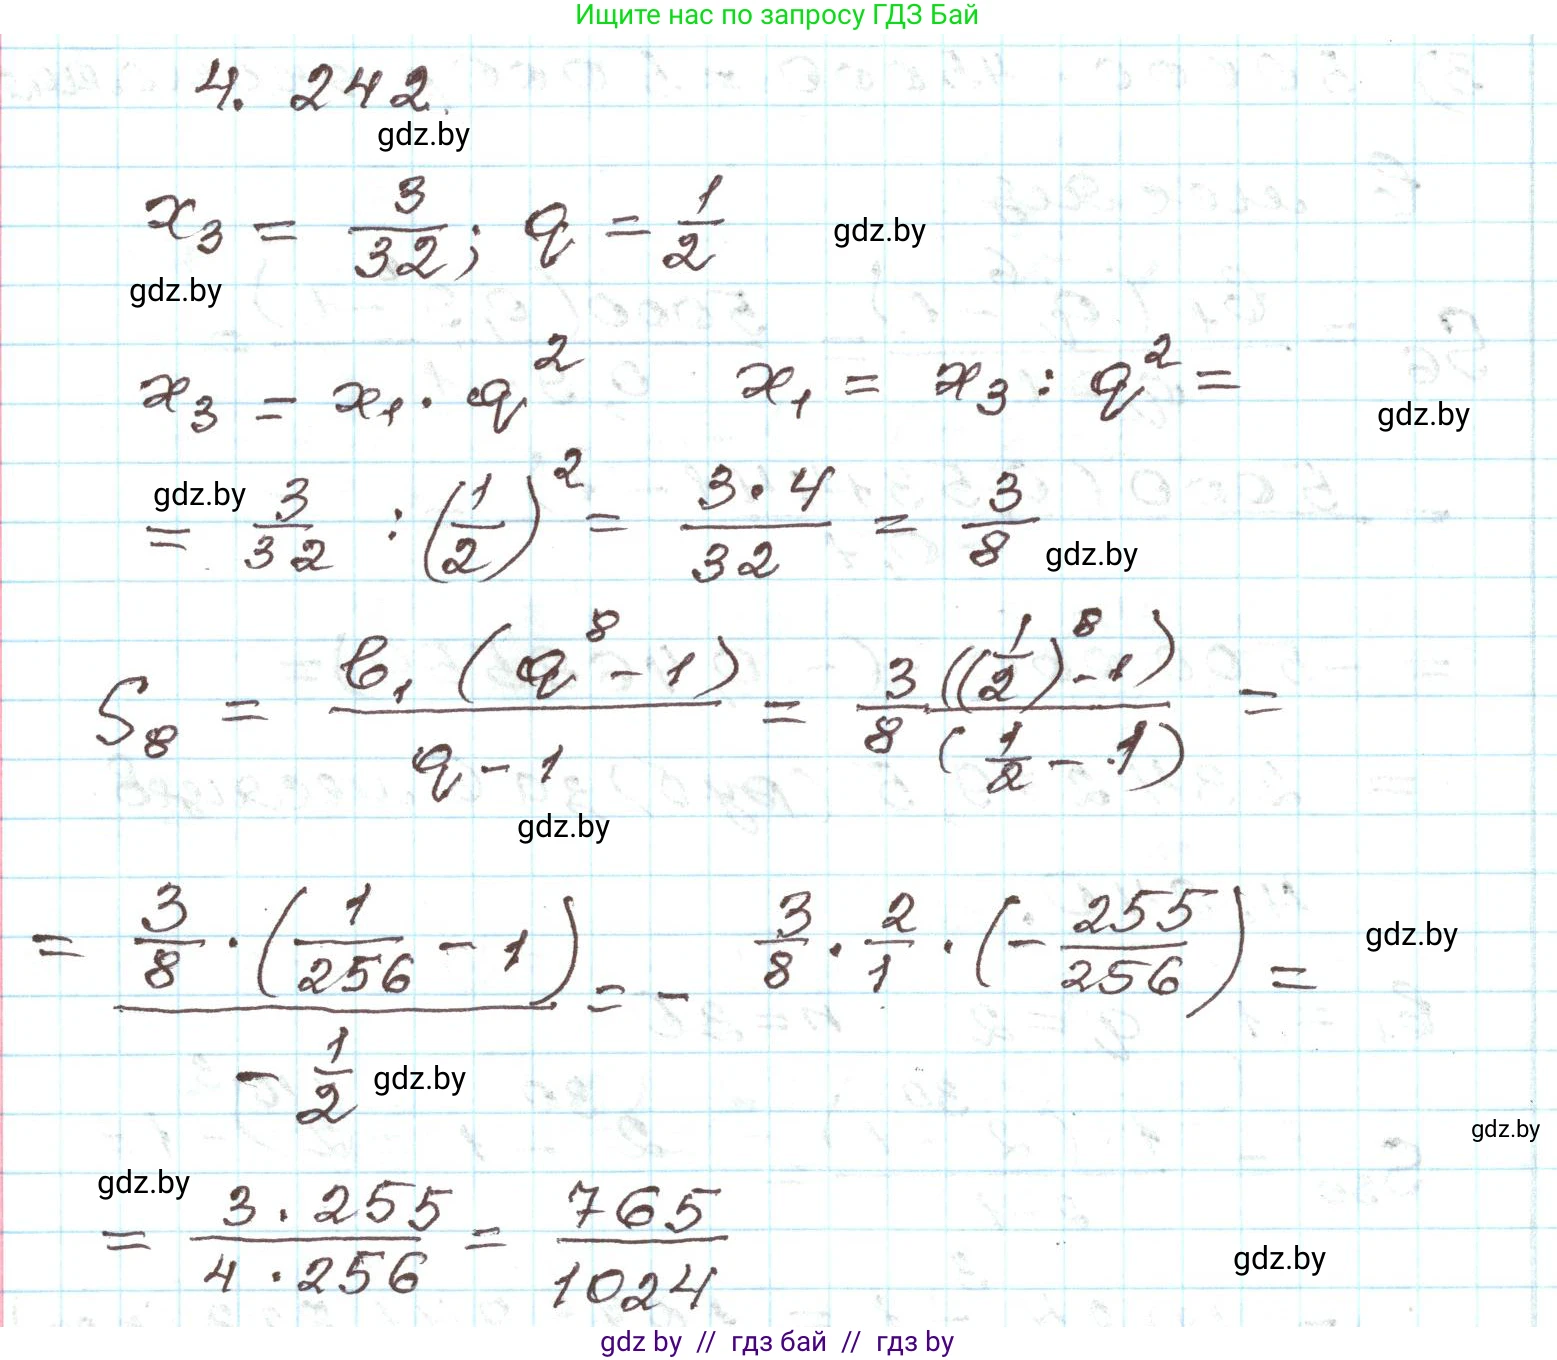 Ищите нас по запросу ГДЗ Бай
4. 242.
gdz.by
x₃ = 3/32; q = 1/2
gdz.by
gdz.by
x₃ = x₁ · q² x₁ = x₃ : q² =
gdz.by
gdz.by
= 3/32 : (1/2)² = 3·4/32 = 3/8
gdz.by
S₈ = b₁ (q⁸ - 1)/q - 1 = 3/8 ((1/2)⁸ - 1)/(1/2 - 1) =
gdz.by
= 3/8 · (1/256 - 1)/- 1/2 = - 3/8 · 2/1 · (- 255/256) =
gdz.by
gdz.by
gdz.by
gdz.by
= 3 · 255/4 · 256 = 765/1024
gdz.by
gdz by // гдз бай // гдз by